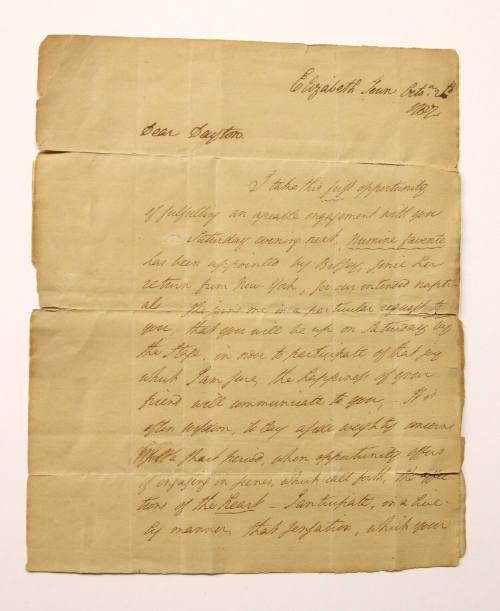 Elizabeth Town Octo.
Dear Dayton.
I take this first opportunity
of fulfilling an agreable engagement with you
Saturday evening next, Numine favente
has been appointed by Betsey, since her
return from New York, for our intended nupti-
als. She joins me in a particular request to
you, that you will be up on Saturday by
the Stage, in order to participate of that joy
which I am sure, the happiness of your
friend will communicate to you. It is
often wisdom, to lay aside weighty concerns
a short period, when opportunity offers
of engaging in scenes, which call forth, the affec-
tions of the heart – I anticipate, in a live-
ly manner, that sensation, which your